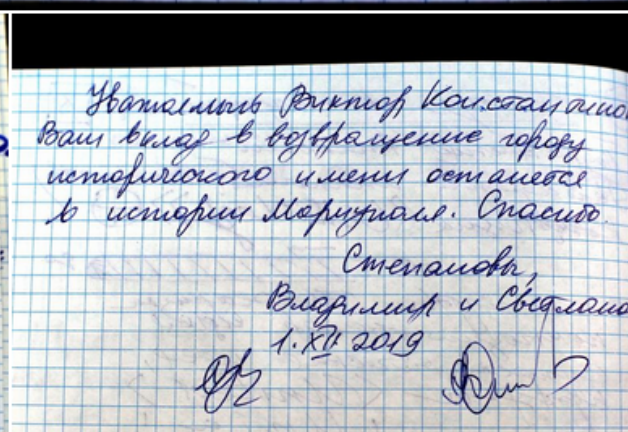 Уважаемый Виктор Константино
Ваш вклад в возвращение городу
исторического имени останется
в истории Мариуполя. Спасибо.
Степановы,
Владимир и Светлана
1.XII 2019